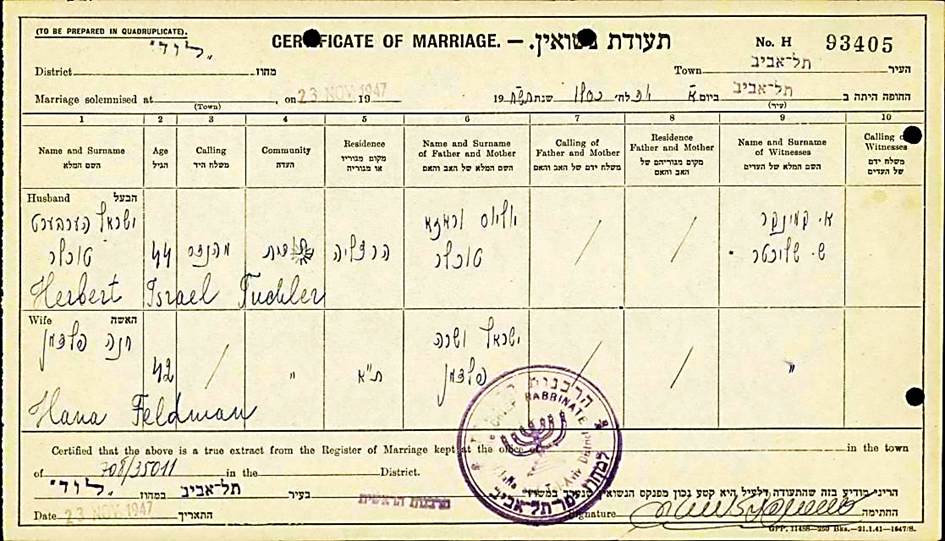 (TO BE PREPARED IN QUADRUPLICATE).
CERTIFICATE OF MARRIAGE. — תעודת נשואין.
No. H 93405
"לוד"
District מחוז
Town תל-אביב העיר
Marriage solemnised at , on 23 NOV. 1947 19
(Town)
החופה היתה ב תל-אביב ביום א' לח' כסלו שנת תש"ח 19
(עיר)
1 2 3 4 5 6 7 8 9 10
Name and Surname
השם המלא
Age
הגיל
Calling
משלח היד
Community
העדה
Residence
מקום מגוריו
או מגוריה
Name and Surname
of Father and Mother
השם המלא של האב והאם
Calling of
Father and Mother
משלח ידם של האב והאם
Residence
Father and Mother
מקום מגוריהם של
האב והאם
Name and Surname
of Witnesses
השם המלא של העדים
Calling of
Witnesses
משלח ידם
של העדים
Husband הבעל
ישראל הערבערט
טוכלר
44
מהנדס
הרצליה
טוכלר
א. קמינקר
ש. שליכטר
Herbert Israel Tuchler
Wife האשה
חנה פלדמן
42
"
ת"א
ישראל ושרה
פלדמן
"
Hana Feldman
Certified that the above is a true extract from the Register of Marriage kept at the office of in the town
of 708/35011 in the District.
הריני מודיע בזה שהתעודה דלעיל היא קטע נכון מפנקס הנשואין הנערב במשרד
"לוד" במחוז תל-אביב בעיר הרבנות הראשית
Date 23 NOV. 1947 התאריך
Signature החתימה
RABBINATE
Jaffa and Tel-Aviv District
GPP. 11488—250 Bks.—21.1.41—1647/S.